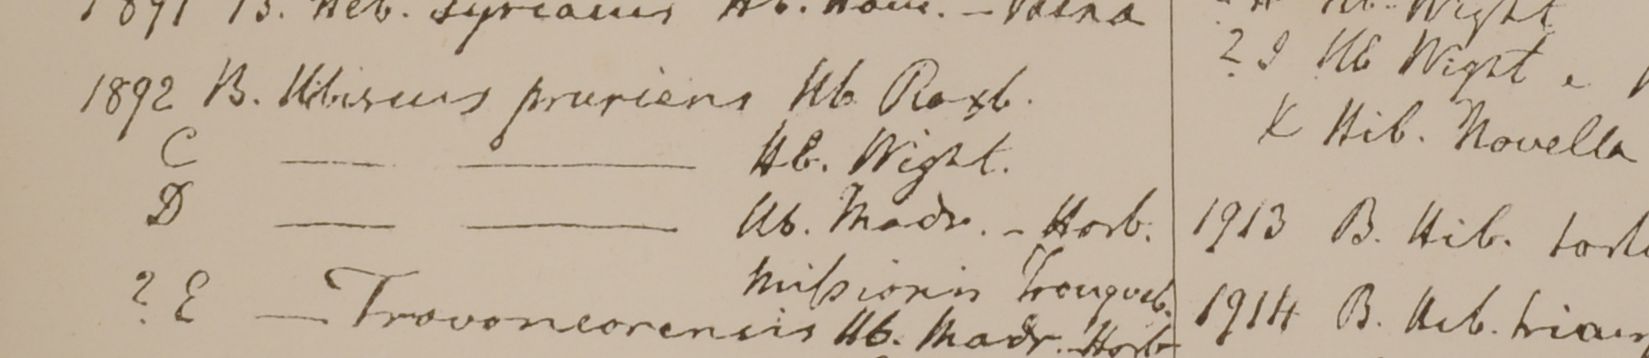 1891 B. Heb. Syriacus Hb. Ham. –
1892 B. Hibiscus pruriens Hb Roxb.
C —— —— Hb. Wight.
D —— —— Hb. Madr. - Horb.
Missionis Tranqueb.
? E — Travancorensis Hb. Madr. Horb
Hb. Wight
? I Hb Wight e
K Hib. Novella
1913 B. Hib.
1914 B. Heb.